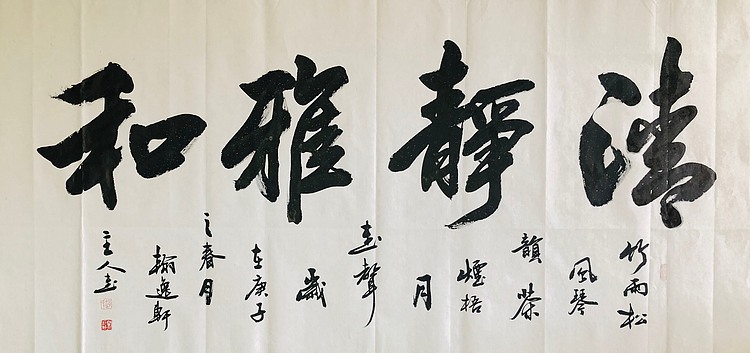 清靜雅和
竹雨松
風琴
韻茶
煙梧
月
書聲
歲
在庚子
之春月
翰逸軒
主人書